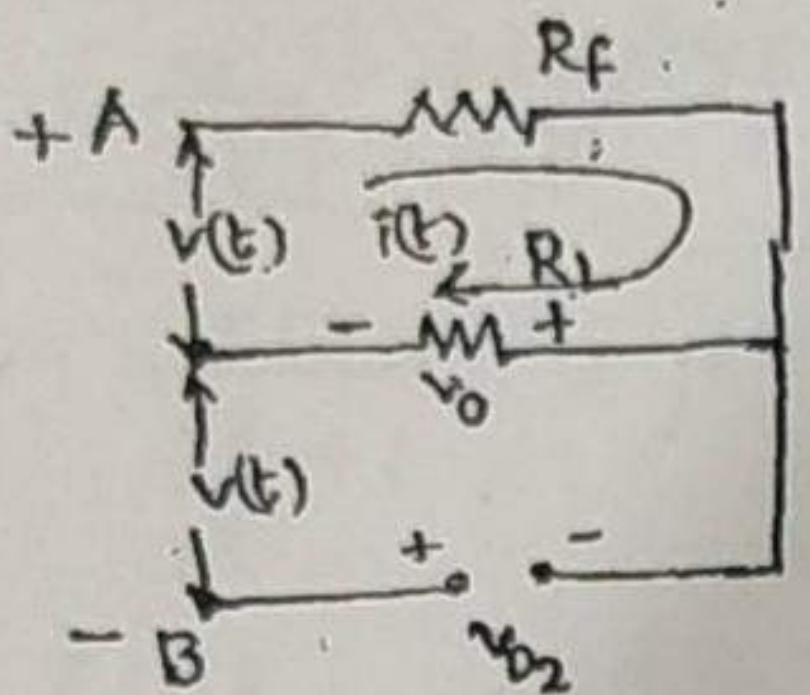 Rf
+ A
v(t)
i(t)
RL
- +
v0
v(t)
+ -
- B
vD2